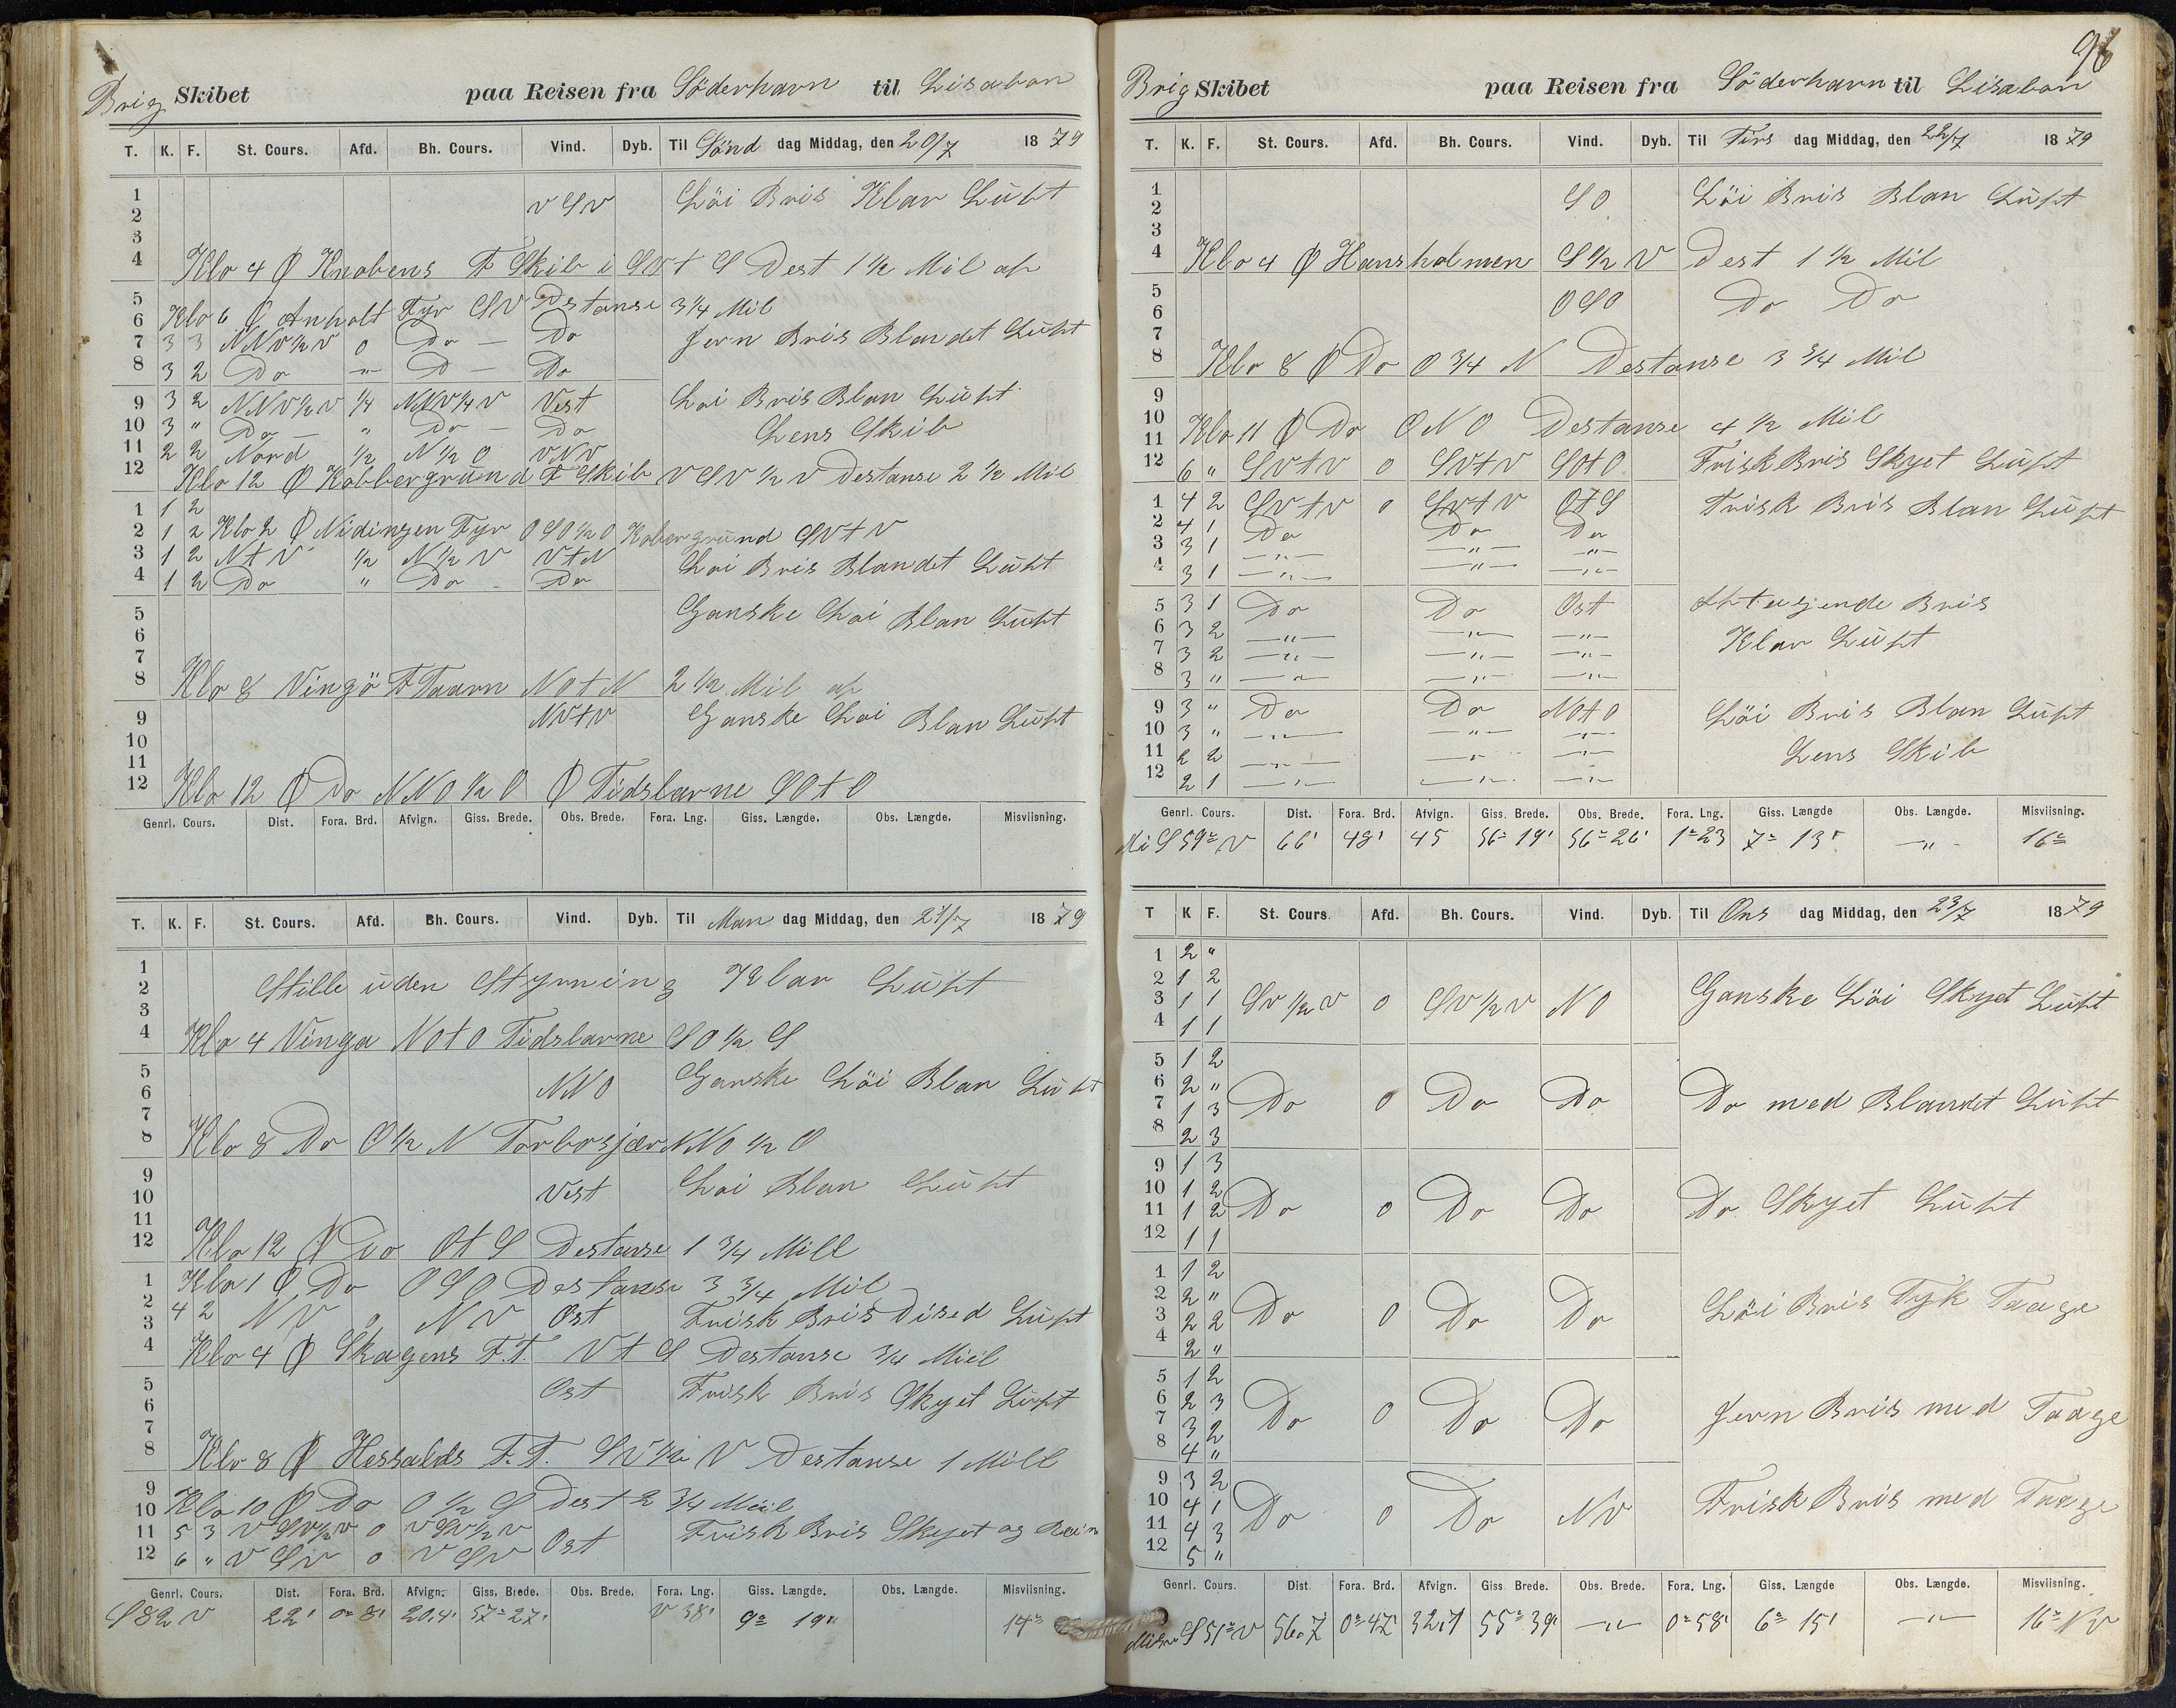 Brig Skibet paa Reisen fra Söderhavn til Lisabon
T. K. F. St. Cours. Afd. Bh. Cours. Vind. Dyb. Til Sönd dag Middag, den 20/7 1879
1 v S v Löi Bris Klar Luft
2
3
4 Klo 4 Ø Knobens F Skib i SV t S Dest 1 1/2 Mil af
5
6 Klo 6 Ø Anholt Fyr SV Destanse 3 1/4 Mil
7 3 3 NNV 1/2 V 0 Do — Do Jevn Bris Blandet Luft
8 3 2 Do — " — D — Do
9 3 2 NNV 1/2 V 1/4 NNV 1/4 V Vest Loi Bris Blan Luft
10 3 " Do — " Do — Do Lens Skib
11 2 2 Nord 1/2 N 1/2 O VNV
12 Klo 12 Ø Kobbergrund F Skib V SV 1/2 V Destanse 2 1/2 Mil
1 1 2
2 1 2 Klo 2 Ø Nidingen Fyr O SO 1/2 O Kobergrund SV t V
3 1 2 N t V 1/2 N 1/2 V V t N Loi Bris Blandet Luft
4 1 2 Do " Do - Do
5 Ganske Loi Blan Luft
6
7
8 Klo 8 Vingö F Taarn NO t N 2 1/2 Mil af
9 NV t V Ganske Loi Blan Luft
10
11
12 Klo 12 Ø Do NNO 1/2 O Ø Tidslarne SO t O
Genrl. Cours. Dist. Fora. Brd. Afvign. Giss. Brede. Obs. Brede. Fora. Lng. Giss. Længde. Obs. Længde. Misviisning.
T. K. F. St. Cours. Afd. Bh. Cours. Vind. Dyb. Til Man dag Middag, den 21/7 1879
1 Stille uden Styrning Klar Luft
2
3
4 Klo 4 Vinga NO t O Tidslarne SO 1/2 S
5 NNO Ganske Löi Blan Luft
6
7
8 Klo 8 Do O 1/2 N NNO 1/2 O
9 Vest Loi Blan Luft
10
11
12 Klo 12 Ø Do O t S Destanse 1 3/4 Mill
1 Klo 1 Ø Do OSO Destanse 3 3/4 Mil
2 4 2 NV 0 NV Ost Frisk Bris Dised Luft
3
4 Klo 4 Ø Skagens F.T. V t S Destanse 3/4 Miil
5 Ost Frisk Bris Skyet Luft
6
7
8 Klo 8 Ø F.T. SV 1/2 V Destanse 1 Mill
9
10 Klo 10 Ø Do O 1/2 S Dest 2 3/4 Miil
11 5 3 V SV 1/2 V 0 V SV 1/2 V Ost Frisk Bris Skyet og
12 6 " V SV 0 V SV
Genrl. Cours. Dist. Fora. Brd. Afvign. Giss. Brede. Obs. Brede. Fora. Lng. Giss. Længde. Obs. Længde. Misviisning.
S 82 V 22' 0° 8' 20.4' 57° 27' V 38' 9° 19" 14°
96
Brig Skibet paa Reisen fra Söderhavn til Lisabon
T. K. F. St. Cours. Afd. Bh. Cours. Vind. Dyb. Til Tirs dag Middag, den 22/7 1879
1 SO Löi Bris Blan Luft
2
3
4 Klo 4 Ø Hansholmen S 1/2 V Dest 1 1/2 Mil
5 OSO Do Do
6
7
8 Klo 8 Ø Do O 3/4 N Destanse 3 3/4 Mil
9
10
11 Klo 11 Ø Do ONO Destanse 4 1/2 Mil
12 6 " SV t V 0 SV t V SO t O Frisk Bris Skyet Luft
1 4 2 SV t V 0 SV t V O t S Frisk Bris Blan Luft
2 4 1 Do Do Do
3 3 1 — " — — " — — " —
4 3 1 — " — — " — — " —
5 3 1 Do Do Ost Aftagende Bris
6 3 2 — " — — " — — " — Klar Luft
7 3 2 — " — — " — — " —
8 3 " — " — — " — — " —
9 3 " Do Do NO t O Löi Bris Blan Luft
10 3 " — " — — " — — " —
11 2 2 — " — — " — — " — Lens Skib
12 2 1 — " — — " — — " —
Genrl. Cours. Dist. Fora. Brd. Afvign. Giss. Brede. Obs. Brede. Fora. Lng. Giss. Længde Obs. Længde. Misviisning.
Mi S 59° V 66' 48' 45 56° 19' 56° 26' 1° 23 7° 13' — " — 16°
T K F. St. Cours. Afd. Bh. Cours. Vind. Dyb. Til Ons dag Middag, den 23/7 1879
1 2 "
2 1 2
3 1 1 SV 1/2 V 0 SV 1/2 V NO Ganske Löi Skyet Luft
4 1 1
5 1 2
6 2 "
7 1 3 Do 0 Do Do Do med Blandet Luft
8 2 3
9 1 3
10 1 2
11 1 2 Do 0 Do Do Do Skyet Luft
12 1 1
1 1 2
2 2 "
3 2 2 Do 0 Do Do Löi Bris Tyk Taage
4 2 "
5 1 2
6 2 3
7 3 2 Do 0 Do Do Jevn Bris med Taage
8 4 "
9 3 2
10 4 1
11 4 3 Do 0 Do NV Frisk Bris med Taage
12 5 "
Genrl. Cours. Dist Fora. Brd. Afvign. Giss. Brede. Obs. Brede. Fora. Lng. Giss. Længde Obs. Længde. Misviisning.
S 51° V 56.7 0° 47' 32.7 55° 39' — " — 0° 58' 6° 15' — " — 16° NV